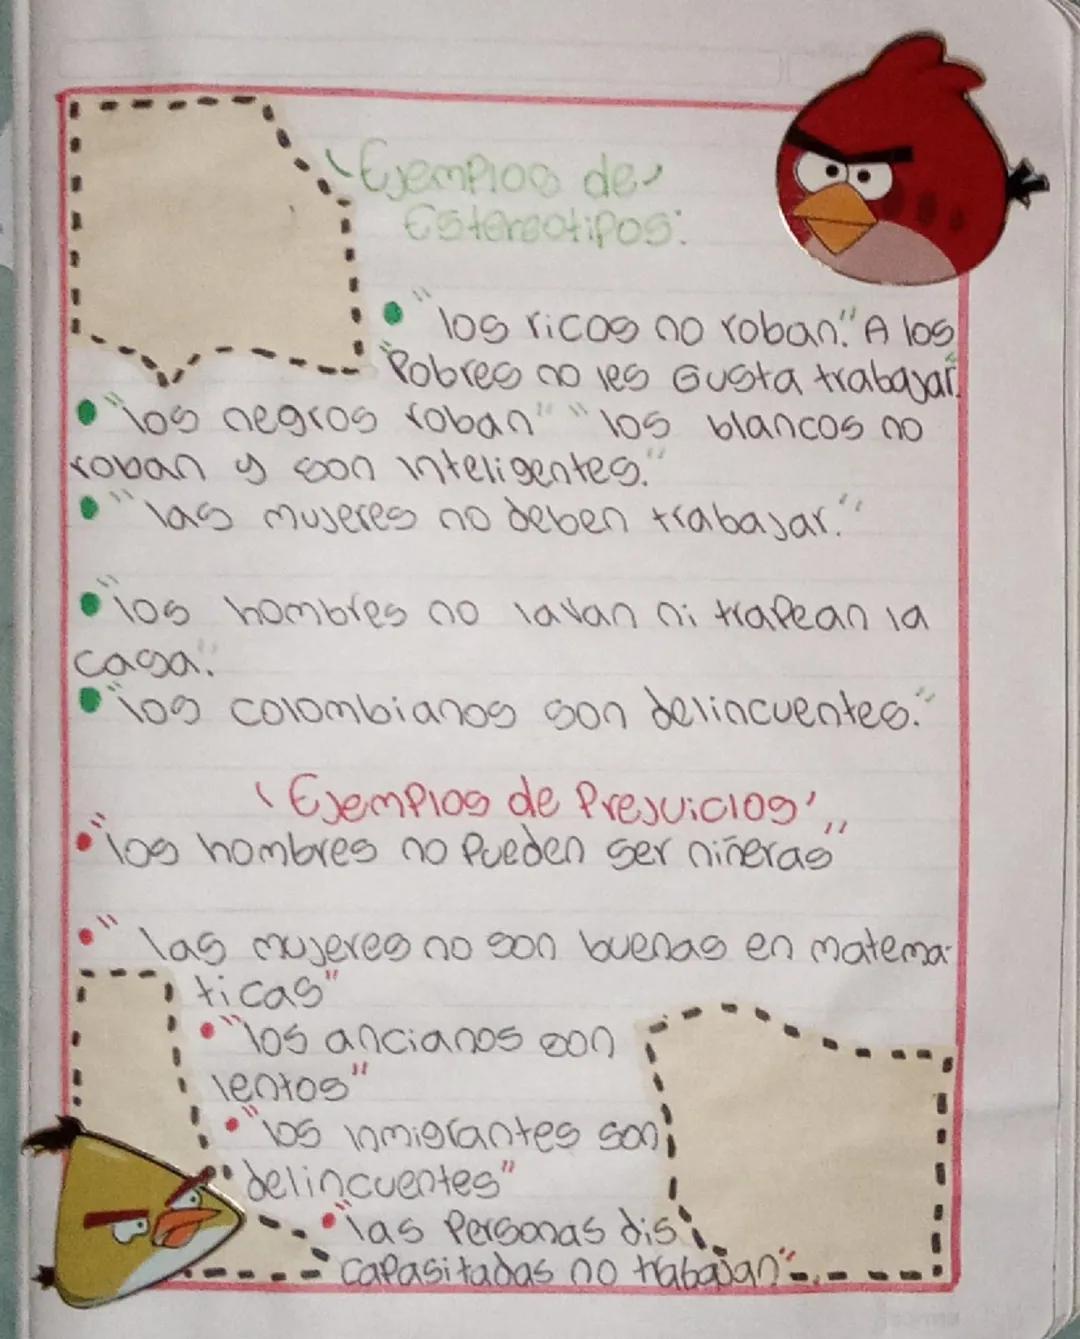 Ejemplos de
Estereotipos:
"los ricos no roban." A los
Pobres no les Gusta trabajar.
"los negros roban" "los blancos no
roban y son inteligentes."
"las mujeres no deben trabajar."
"los hombres no lavan ni trapean la
casa."
"los colombianos son delincuentes."
'Ejemplos de Prejuicios'
"los hombres no pueden ser niñeras"
"las mujeres no son buenas en matema-
ticas"
"los ancianos son
lentos"
"los inmigrantes son
delincuentes"
"las personas dis
capasitadas no trabajan".